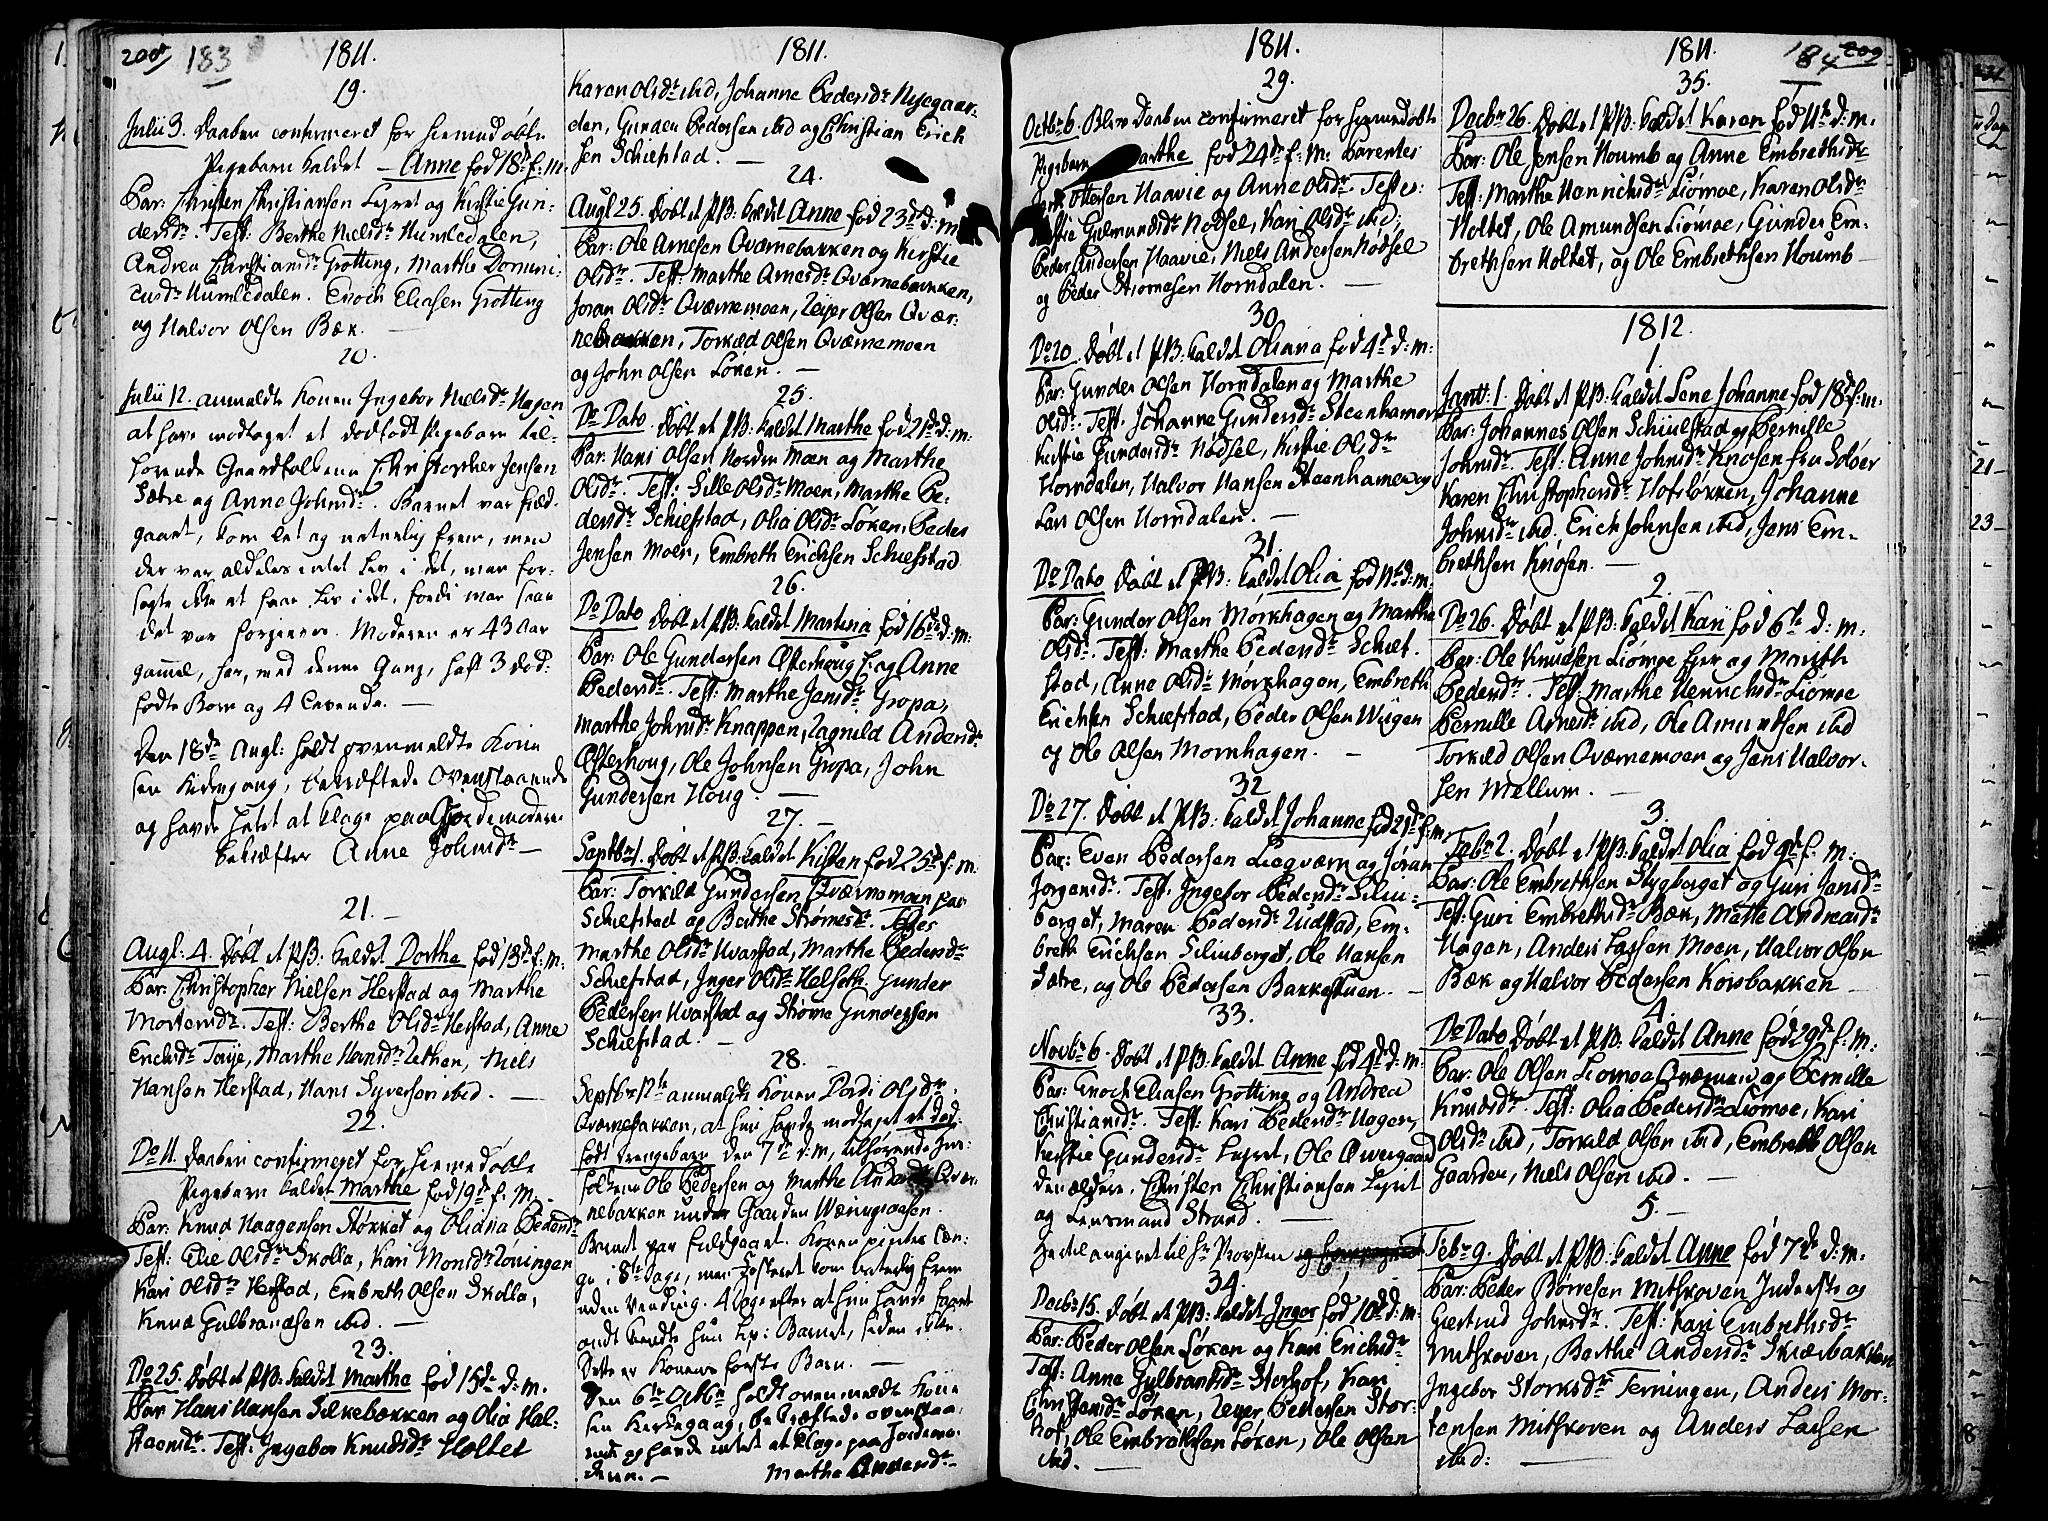 208 183
1811.
19.
Julii 3. Daaben confirmeret for hiemedøbte
Pigebarn kaldet - Anne fød 18d. f: m.
Par: Christen Christiansen Lyret og Kirstie Gun-
dersdr. Test: Berthe Nielsdr Humledalen,
Andrea Christiansdr Grøtting, Marthe Domini-
cusdr Humledalen. Enoch Eliasen Grøtting
og Halvor Olsen Bæk. -
20.
Julii 12. anmeldte Konen Ingebor Nielsdr Hagen
at have modtaget et dødfødt Pigebarn til-
hørende Gaardfolkene Christopher Jensen
Sætre og Anne Johnsdr. Barnet var fuld-
gaaet, kom let og naturlig frem, men
der var aldeles intet Liv i det, man for-
søgte ikke at faae Liv i det, fordi man saae
det var forgieves. Moderen er 43 Aar
gammel, har, med denne Gang, haft 3 død-
fødte Børn og 4 levende. -
Den 18de Augl: holdt ovenmeldte Kone
sin Kirkegang, bekræftede Ovenstaaende
og havde intet at klage paa Jordemoderen
bekræfter Anne Johnsdr -
21. -
Augl: 4. Døbt et PB: kaldet Dorthe fød 13d. f: m.
Par: Christopher Nielsen Herstad og Marthe
Mortensdr. Test: Berthe Olsdr Herstad, Anne
Erichsdr Torje, Marthe Hansdr Zethen, Niels
Hansen Herstad, Hans Syversen ibid. -
22.
Do 11. Daaben confirmeret for hiemedøbte
Pigebarn kaldet Marthe fød 19d f. M.
Par: Knud Haagensen Støkket og Oliana Pedersdr
Test: Elie Olsdr Skolla, Kari Monsdr Loningen
Kari Olsdr Herstad, Embreth Olsen Skolla,
Knud Gulbrandsen ibid. -
23.
Do 25. Døbt et PB: kaldet Marthe fød 15de d: m.
Par: Hans Hansen Silkebækken og Olia Hal-
steensdr. Test: Ingebor Knudsdr Holtet
1811.
Karen Olsdr ibid, Johanne Pedersdr Nysegaar-
den, Gunder Pedersen ibid og Christian Erich
sen Schiefstad. -
24.
Augl 25. Døbt et PB: kaldet Anne fød 23d. d: m
Par: Ole Arnesen Qværnebakken og Kirstie
Olsdr. Test: Marthe Arnesdr Qværnebakken,
Joran Olsdr Qværnemoen, Zejer Olsen Qvær-
nebakken, Torkæd Olsen Qværnemoen
og John Olsen Løken. -
25.
Do Dato. Døbt et PB: kaldet Marthe fød 21de d: m:
Par: Hans Olsen Norden Moen og Marthe
Olsdr. Test: Sille Olsdr Moen, Marthe Pe-
dersdr Schiefstad, Olia Olsdr Løken, Peder
Jensen Moen, Embreth Erichsen Schiefstad
26.
Do Dato Døbt et PB: kaldet Marthia fød 16de d: m:
Par: Ole Gundersen Østerhoug E: og Anne
Pedersdr. Test: Marthe Jensdr Gropa,
Marthe Johnsdr Knappen, Ragnild Andersdr
Østerhoug, Ole Johnsen Gropa, John
Gundersen Houg. -
27. -
Septbr 1. Døbt et PB: kaldet Kisten fød 25d f. m.
Par: Torkild Gundersen Qværnemoen paa
Schiefstad og Berthe Strømesdr. Testes
Marthe Olsdr Hvarstad, Marthe Pedersdr
Schiefstad, Inger Olsdr Helseth. Gunder
Pedersen Hvarstad og Strøme Gundersen
Schiefstad. -
28. -
Septbr 12te anmeldte Konen Pordi Olsdr.
Qværnebakken, at hun havde modtaget et død-
født Drengebarn den 7de d: m, tilhørende In-
folkene Ole Pedersen og Marthe Andersdr Qvær-
nebakken under Gaarden Wæringsaasen.
Barnet var fuldgaaet. Konen pintes læn-
ge i 8te Dage, men Fosteret kom naturlig frem
uden Vending. 4 Uger efter at hun havde faaet
ondt kiendte hun Liv: Barnet, siden ikke.
Dette er Konens første Barn. -
Den 6te Octbr holdt ovenmeldte Kone
sin Kirkegang, bekræftede ovenstaa-
ende og havde intet at klage paa Jordemo-
deren. - Marthe Andersdr -
1811.
29.
Octbr 6. Blev Daaben confirmeret for hiemedøbte
Pigebarn Marthe fød 24d f. m: Parentes
Ottersen Haavie og Anne Olsdr. Testes:
Kirstie Gulmundsdr Nødsel, Kari Olsdr ibid;
Peder Andersen Haavie, Niels Andersen Nødsel
og Peder Strømesen Horndalen. -
30.
Do 20. Døbt et PB: kaldet Oliana fød 4d d: m:
Par: Gunder Olsen Horndalen og Marthe
Olsdr. Test: Johanne Gundersdr Steenhamer
Kirstie Gundersdr Nødsel, Kirstie Olsdr
Horndalen, Halvor Hansen Steenhamer og
Lars Olsen Horndalen. -
31.
Do Dato Døbt et PB: kaldet Olia fød 13de d: m:
Par: Gunder Olsen Mørkhagen og Marthe
Olsdr. Test: Marthe Pedersdr Schief-
stad, Anne Olsdr Mørkhagen, Embreth
Erichsen Schiefstad, Peder Olsen Wiigen
og Ole Olsen Mørkhagen. -
32
Do 27. Døbt et PB: kaldet Johanne fød 21de f: m
Par: Even Pedersen Liegværn og Jøran
Jorgensdr. Test: Ingebor Pedersdr Siliu-
berget, Maren Pedersdr Rudstad, Em-
breth Erichsen Siliuberget, Ole Hansen
Sætre, og Ole Pedersen Bakkestuen. -
33.
Novbr 6. Døbt et PB: kaldet Anne fød 4de d: m
Par: Enoch Eliasen Grøtting og Andrea
Christiansdr. Test: Kari Pedersdr Hagen,
Kirstie Gundersdr Lyret, Ole Øwergaard
den ældre, Christen Christiansen Lyret
og Lensmand Strand.
Indtil angivet til Hr Provsten
34.
Decbr 15. Døbt et PB: kaldet Inger fød 10de d: m:
Par: Peder Olsen Løken og Kari Erichsdr
Test: Anne Gulbrandsdr Storhof, Kari
Christensdr Løken, Zejer Pedersen Stor-
hof, Ole Embrethsen Løken, Ole Olsen
ibid. -
1811. 184 209
35.
Decbr 26. Døbt et PB: kaldet Karen fød 11te d: m.
Par: Ole Jensen Houmb og Anne Embrethsdr
Test: Marthe Hennichsdr Liømoe, Karen Olsdr
Holtet, Ole Amundsen Liømoe, Gunder Em-
brethsen Holtet, og Ole Embrethsen Houmb -
1812.
1.
Janv: 1. Døbt et PB: kaldet Lene Johanne fød 18d f: m.
Par: Johannes Olsen Schiulstad og Pernille
Johnsdr. Test: Anne Johnsdr Knosen fra Soloer
Karen Christophersdr Hofsløkken, Johanne
Johnsdr ibid. Erich Johnsen ibid, Jens Em-
brethsen Knosen. -
2.
Do 26. Døbt et PB: kaldet Kari fød 6te d: m.
Par: Ole Knudsen Liømoe Ejer og Marth
Pedersdr. Test: Marthe Hennichsdr Liømoe
Pernille Arnesdr ibid, Ole Amundsen ibid
Torkild Olsen Qværnemoen og Jens Halvor-
sen Mellum. -
3.
Febr 2. Døbt et PB: kaldet Olia fød 9d f. m:
Par: Ole Embrethsen Skyberget og Guri Jensdr
Test: Guri Embrethsdr Bæk, Mette Andreasdr
Hagen, Anders Larsen Moen, Halvor Olsen
Bæk og Halvor Pedersen Korsbakken -
4.
Do Dato Døbt et PB: kaldet Anne fød 29d f. m:
Par: Ole Olsen Liømoe Qværnen og Pernille
Knudsdr. Test: Olia Pedersdr Liømoe, Kari
Olsdr ibid, Torkild Olsen ibid, Embreth Olsen
Gaarder, Niels Olsen ibid. -
5. -
Febr 9. Døbt et PB: kaldet Anne fød 7de d: m.
Par: Peder Børresen Mithskoven Inderste og
Giertrud Johnsdr. Test: Kari Embrethsdr
Mithskoven, Berthe Andersdr Skierbakken
Ingebor Storksdr Terningen, Anders Mor-
tensen Mithskoven og Anders Larsen
ibid: -